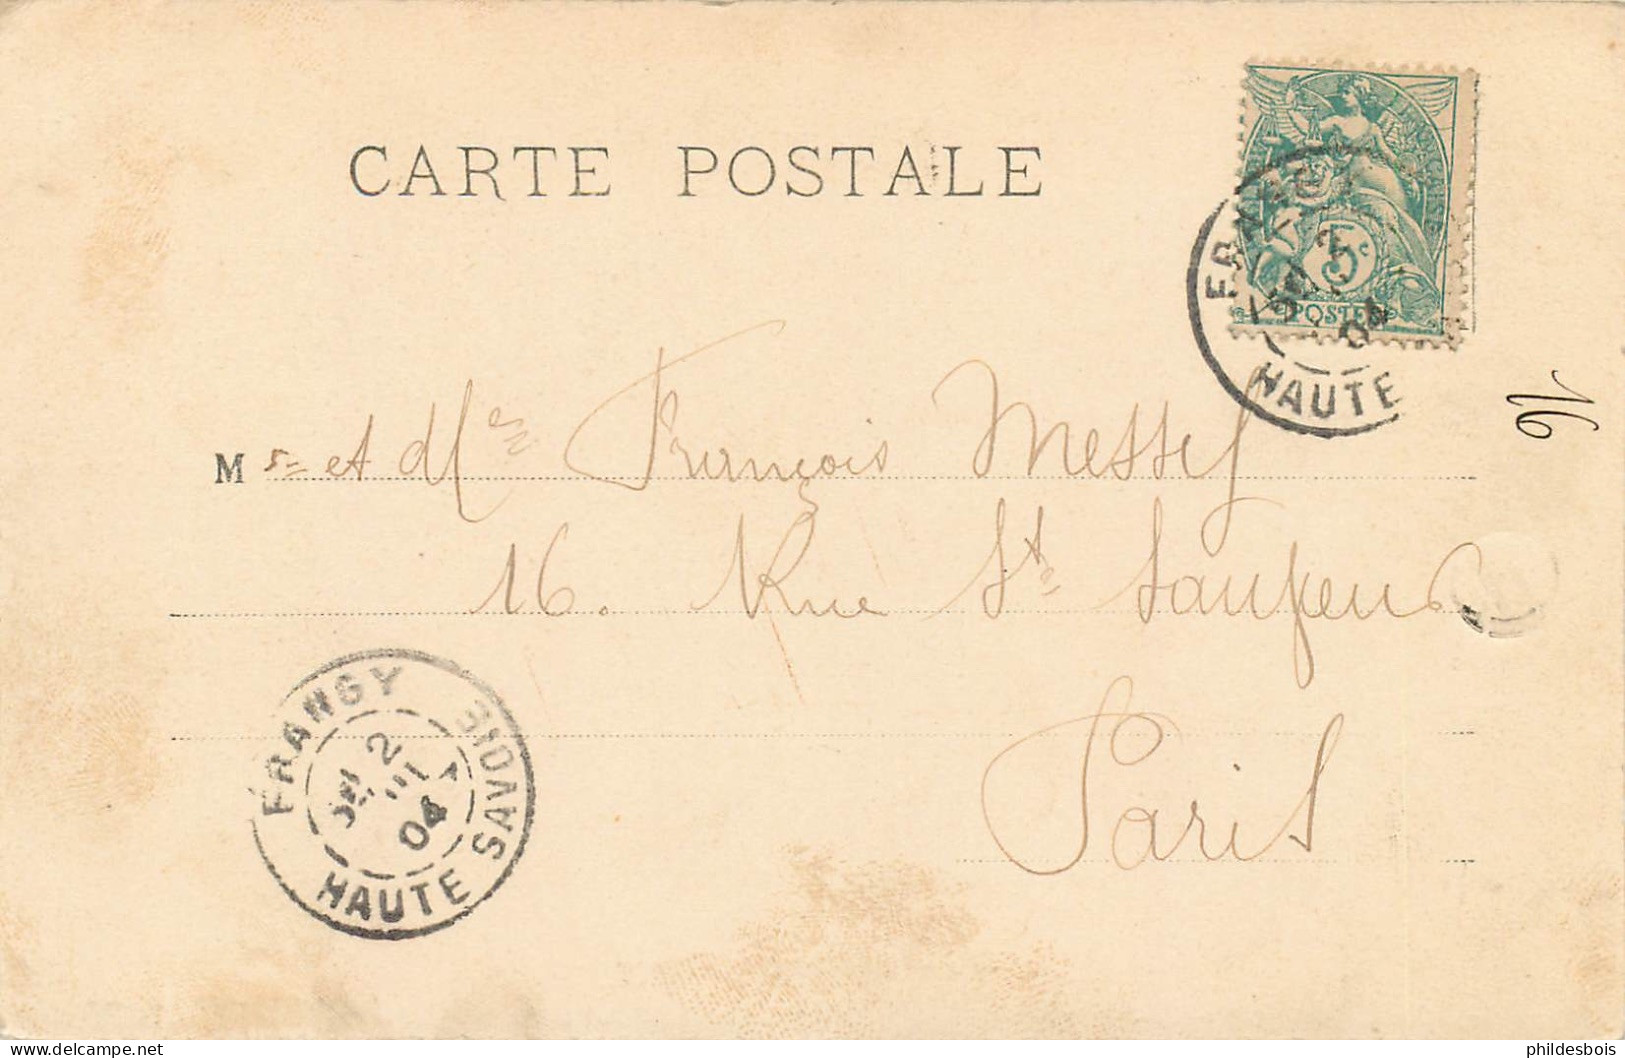 CARTE POSTALE
5c
POSTES
FRANGY
2
04
HAUTE
Mr et Mme François Messey
16. Rue St Sauveur
Paris
FRANGY
2
04
HAUTE SAVOIE
16
phildesbois